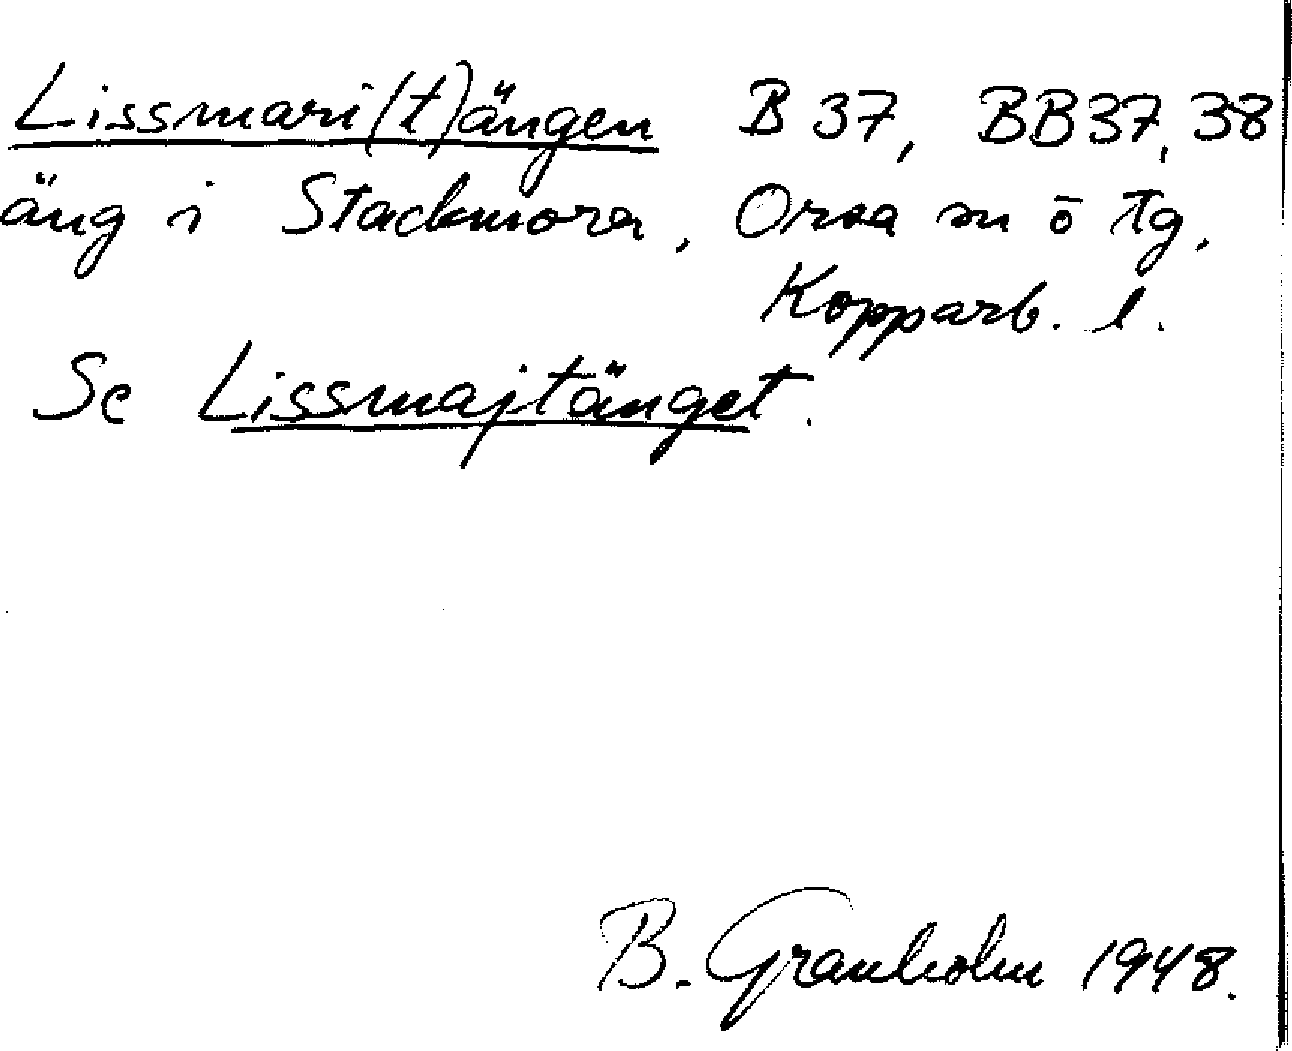 Lissmari(t)ängen B 37, BB37, 38
äng i Stackmora, Orsa sn ö tg,
Kopparb. l.
Se Lissmajtänget.
B. Granholm 1948.